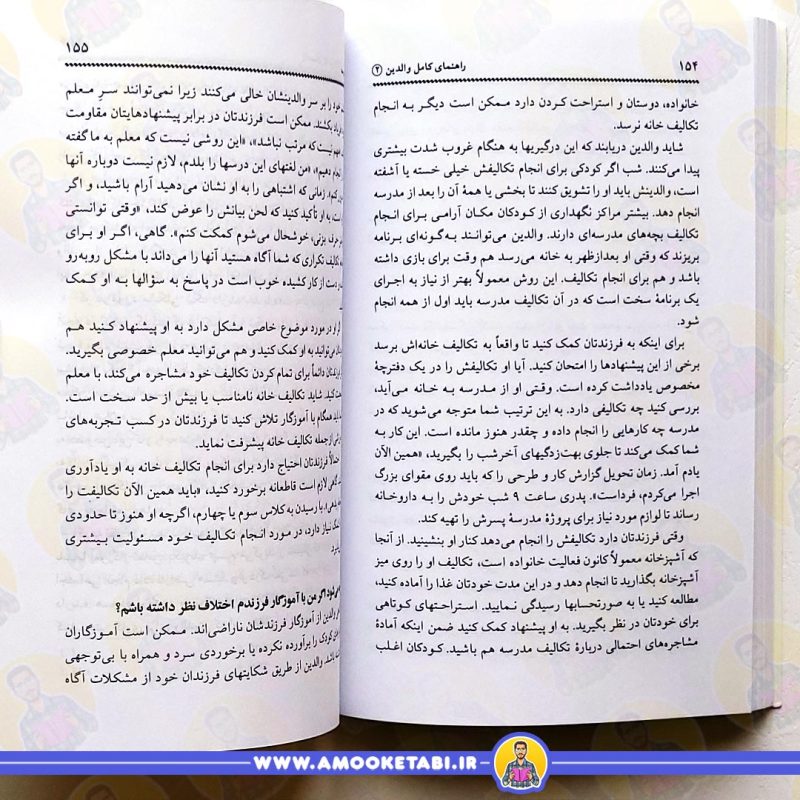 ۱۵۴
راهنمای کامل والدین (۲)
خانواده، دوستان و استراحت کردن دارد ممکن است دیگر به انجام
تکالیف خانه نرسد.
شاید والدین دریابند که این درگیریها به هنگام غروب شدت بیشتری
پیدا می‌کنند. شب اگر کودکی برای انجام تکالیفش خیلی خسته یا آشفته
است، والدینش باید او را تشویق کنند تا بخشی یا همهٔ آن را بعد از مدرسه
انجام دهد. بیشتر مراکز نگهداری از کودکان مکان آرامی برای انجام
تکالیف بچه‌های مدرسه‌ای دارند. والدین می‌توانند به گونه‌ای برنامه
بریزند که وقتی او بعدازظهر به خانه می‌رسد هم وقت برای بازی داشته
باشد و هم برای انجام تکالیف. این روش معمولاً بهتر از نیاز به اجرای
یک برنامهٔ سخت است که در آن تکالیف مدرسه باید اول از همه انجام
شود.
برای اینکه به فرزندتان کمک کنید تا واقعاً به تکالیف خانه‌اش برسد
برخی از این پیشنهادها را امتحان کنید. آیا او تکالیفش را در یک دفترچهٔ
مخصوص یادداشت کرده است. وقتی او از مدرسه به خانه می‌آید،
بررسی کنید چه تکالیفی دارد. به این ترتیب شما متوجه می‌شوید که در
مدرسه چه کارهایی را انجام داده و چقدر هنوز مانده است. این کار به
شما کمک می‌کند تا جلوی بهت‌زدگیهای آخرشب را بگیرید، «همین الآن
یادم آمد. زمان تحویل گزارش کار و طرحی را که باید روی مقوای بزرگ
اجرا می‌کردم، فرداست». پدری ساعت ۹ شب خودش را به داروخانه
رساند تا لوازم مورد نیاز برای پروژهٔ مدرسهٔ پسرش را تهیه کند.
وقتی فرزندتان دارد تکالیفش را انجام می‌دهد کنار او بنشینید. از آنجا
که آشپزخانه معمولاً کانون فعالیت خانواده است، تکالیف او را روی میز
آشپزخانه بگذارید تا انجام دهد و در این مدت خودتان غذا را آماده کنید،
مطالعه کنید یا به صورتحسابها رسیدگی نمایید. استراحتهای کوتاهی
برای خودتان در نظر بگیرید. به او پیشنهاد کمک کنید ضمن اینکه آمادهٔ
مشاجره‌های احتمالی دربارهٔ تکالیف مدرسه هم باشید. کودکان اغلب
۱۵۵
خود را بر سر والدینشان خالی می‌کنند زیرا نمی‌توانند سرِ معلم
بکشند. ممکن است فرزندتان در برابر پیشنهادهایتان مقاومت
نیست که مرتب نباشد»، «این روشی نیست که معلم به ما گفته
انجام دهیم»، «من لغتهای این درسها را بلدم، لازم نیست دوباره آنها
زمانی که اشتباهی را به او نشان می‌دهید آرام باشید، و اگر
به او تأکید کنید که لحن بیانش را عوض کند، «وقتی توانستی
حرف بزنی، خوشحال می‌شوم کمکت کنم». گاهی، اگر او برای
تکالیف تکراری که شما آگاه هستید آنها را می‌داند با مشکل روبه‌رو
دست از کار کشیده خوب است در پاسخ به سؤالها به او کمک
او در مورد موضوع خاصی مشکل دارد به او پیشنهاد کنید هم
می‌توانید به او کمک کنید و هم می‌توانید معلم خصوصی بگیرید.
فرزندتان دائماً برای تمام کردن تکالیف خود مشاجره می‌کند، با معلم
کنید. شاید تکالیف خانه نامناسب یا بیش از حد سخت است.
همگام با آموزگار تلاش کنید تا فرزندتان در کسب تجربه‌های
ازجمله تکالیف خانه پیشرفت نماید.
فرزندتان احتیاج دارد برای انجام تکالیف خانه به او یادآوری
گاهی لازم است قاطعانه برخورد کنید، «باید همین الآن تکالیفت را
با رسیدن به کلاس سوم یا چهارم، اگرچه او هنوز تا حدودی
نیاز دارد، در مورد انجام تکالیف خود مسئولیت بیشتری
اگر من با آموزگار فرزندم اختلاف نظر داشته باشم؟
والدین از آموزگار فرزندشان ناراضی‌اند. ممکن است آموزگاران
کودک را برآورده نکرده یا برخوردی سرد و همراه با بی‌توجهی
باشد. والدین از طریق شکایتهای فرزندان خود از مشکلات آگاه
WWW.AMOOKETABI.IR